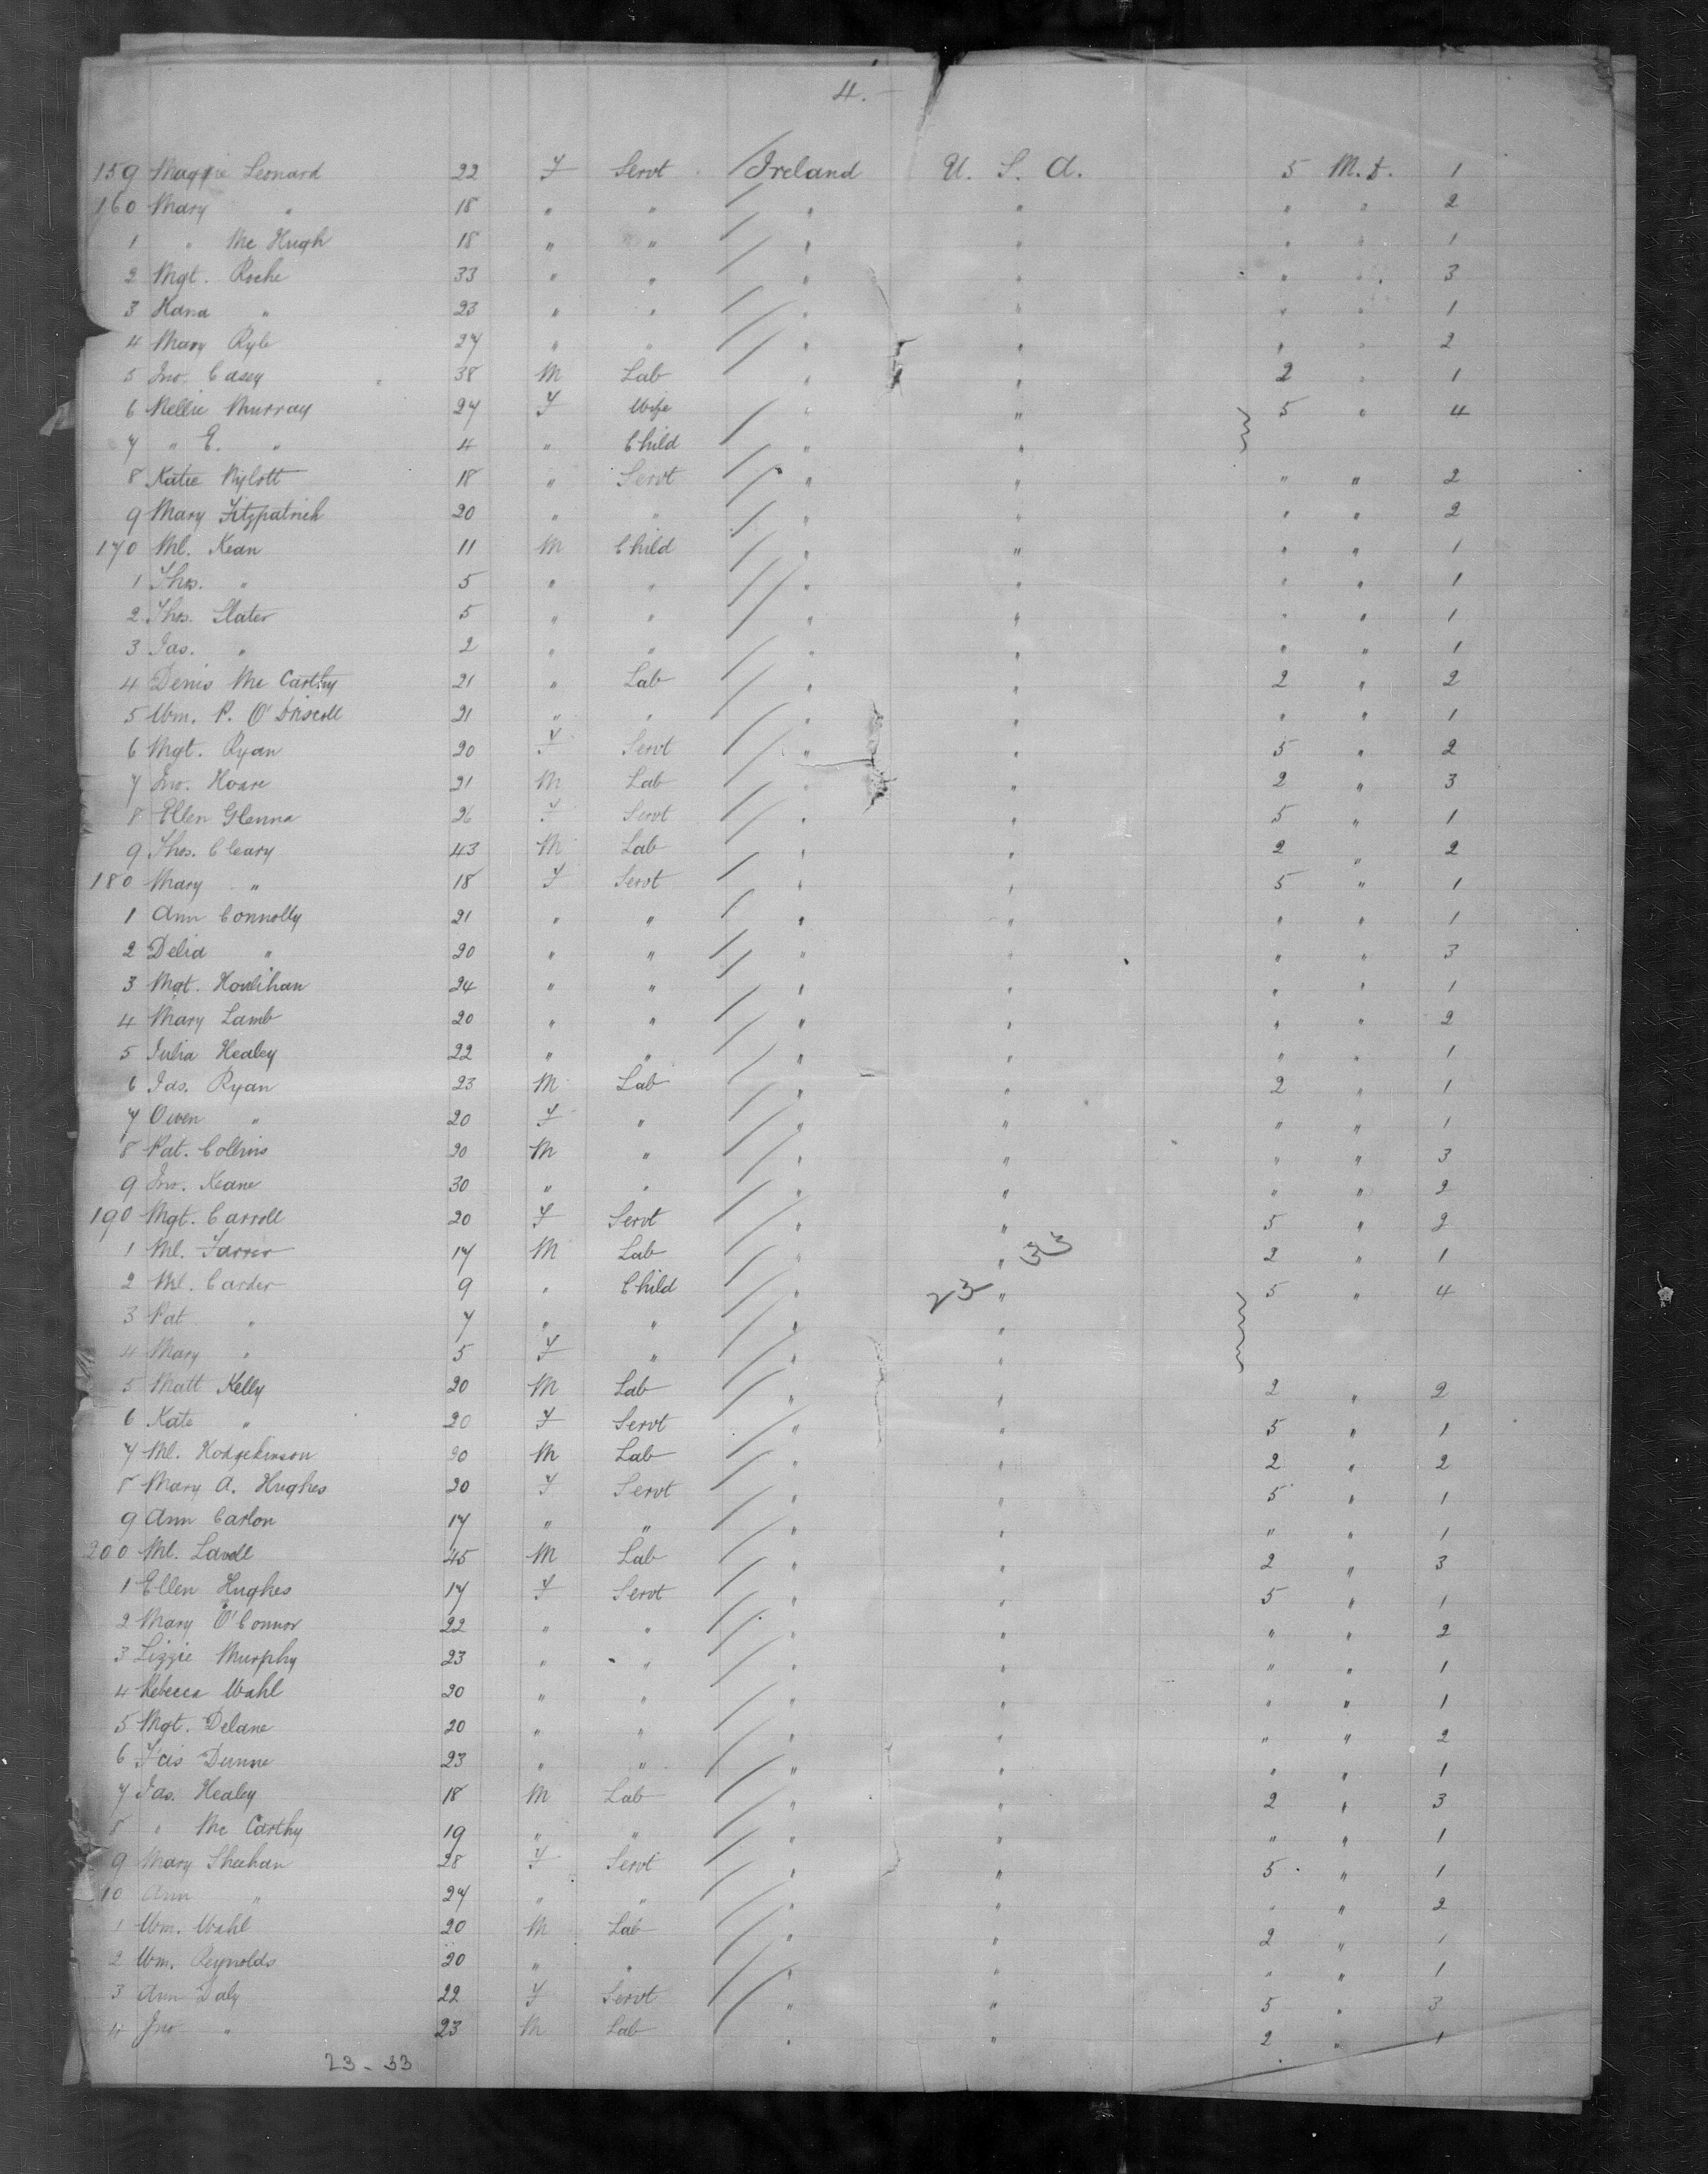 4.
159 Maggie Leonard 22 F Servt Ireland U. S. A. 5 M.D. 1
160 Mary " 18 " " " " " " 2
1 " Mc Hugh 18 " " " " " " 1
2 Mgt. Roche 33 " " " " " " 3
3 Hana " 23 " " " " " " 1
4 Mary Ryle 27 " " " " " " 2
5 Jno. Casey 38 M Lab " " 2 " 1
6 Nellie Murray 27 F Wife " " 5 " 4
7 " E. " 4 " Child " "
8 Katie Nylott 18 " Servt " " " " 2
9 Mary Fitzpatrick 20 " " " " " " 2
170 Ml. Kean 11 M Child " " " " 1
1 Thos. " 5 " " " " " " 1
2 Thos. Slater 5 " " " " " " 1
3 Jas. " 2 " " " " " " 1
4 Denis Mc Carthy 21 " Lab " " 2 " 2
5 Wm. P. O'Driscoll 21 " " " " " " 1
6 Mgt. Ryan 20 F Servt " " 5 " 2
7 Jno. Hoare 21 M Lab " " 2 " 3
8 Ellen Glenna 26 F Servt " " 5 " 1
9 Thos. Cleary 43 M Lab " " 2 " 2
180 Mary " 18 F Servt " " 5 " 1
1 Ann Connolly 21 " " " " " " 1
2 Delia " 20 " " " " " " 3
3 Mgt. Houlihan 24 " " " " " " 1
4 Mary Lamb 20 " " " " " " 2
5 Julia Healey 22 " " " " " " 1
6 Jas. Ryan 23 M Lab " " 2 " 1
7 Owen " 20 F " " " " " 1
8 Pat. Collins 20 M " " " " " 3
9 Jno. Keane 30 " " " " " " 2
190 Mgt. Carroll 20 F Servt " " 5 " 2
1 Ml. Farrer 17 M Lab " " 33 2 " 1
2 Ml. Carder 9 " Child " 23 " 5 " 4
3 Pat " 7 " " " "
4 Mary " 5 F " " "
5 Matt Kelly 20 M Lab " " 2 " 2
6 Kate " 20 F Servt " " 5 " 1
7 Ml. Hodgekinson 20 M Lab " " 2 " 2
8 Mary A. Hughes 20 F Servt " " 5 " 1
9 Ann Carlon 17 " " " " " " 1
200 Ml. Lavell 45 M Lab " " 2 " 3
1 Ellen Hughes 17 F Servt " " 5 " 1
2 Mary O'Connor 22 " " " " " " 2
3 Lizzie Murphy 23 " " " " " " 1
4 Rebecca Wahl 20 " " " " " " 1
5 Mgt. Delane 20 " " " " " " 2
6 Fcis Dunne 23 " " " " " " 1
7 Jas. Healey 18 M Lab " " 2 " 3
8 " Mc Carthy 19 " " " " " " 1
9 Mary Sheehan 28 F Servt " " 5 " 1
10 Ann " 24 " " " " " " 2
1 Wm. Wahl 20 M Lab " " 2 " 1
2 Wm. Reynolds 20 " " " " " " 1
3 Ann Daly 22 F Servt " " 5 " 3
4 Jno " 23 M Lab " " 2 " 1
23 - 33